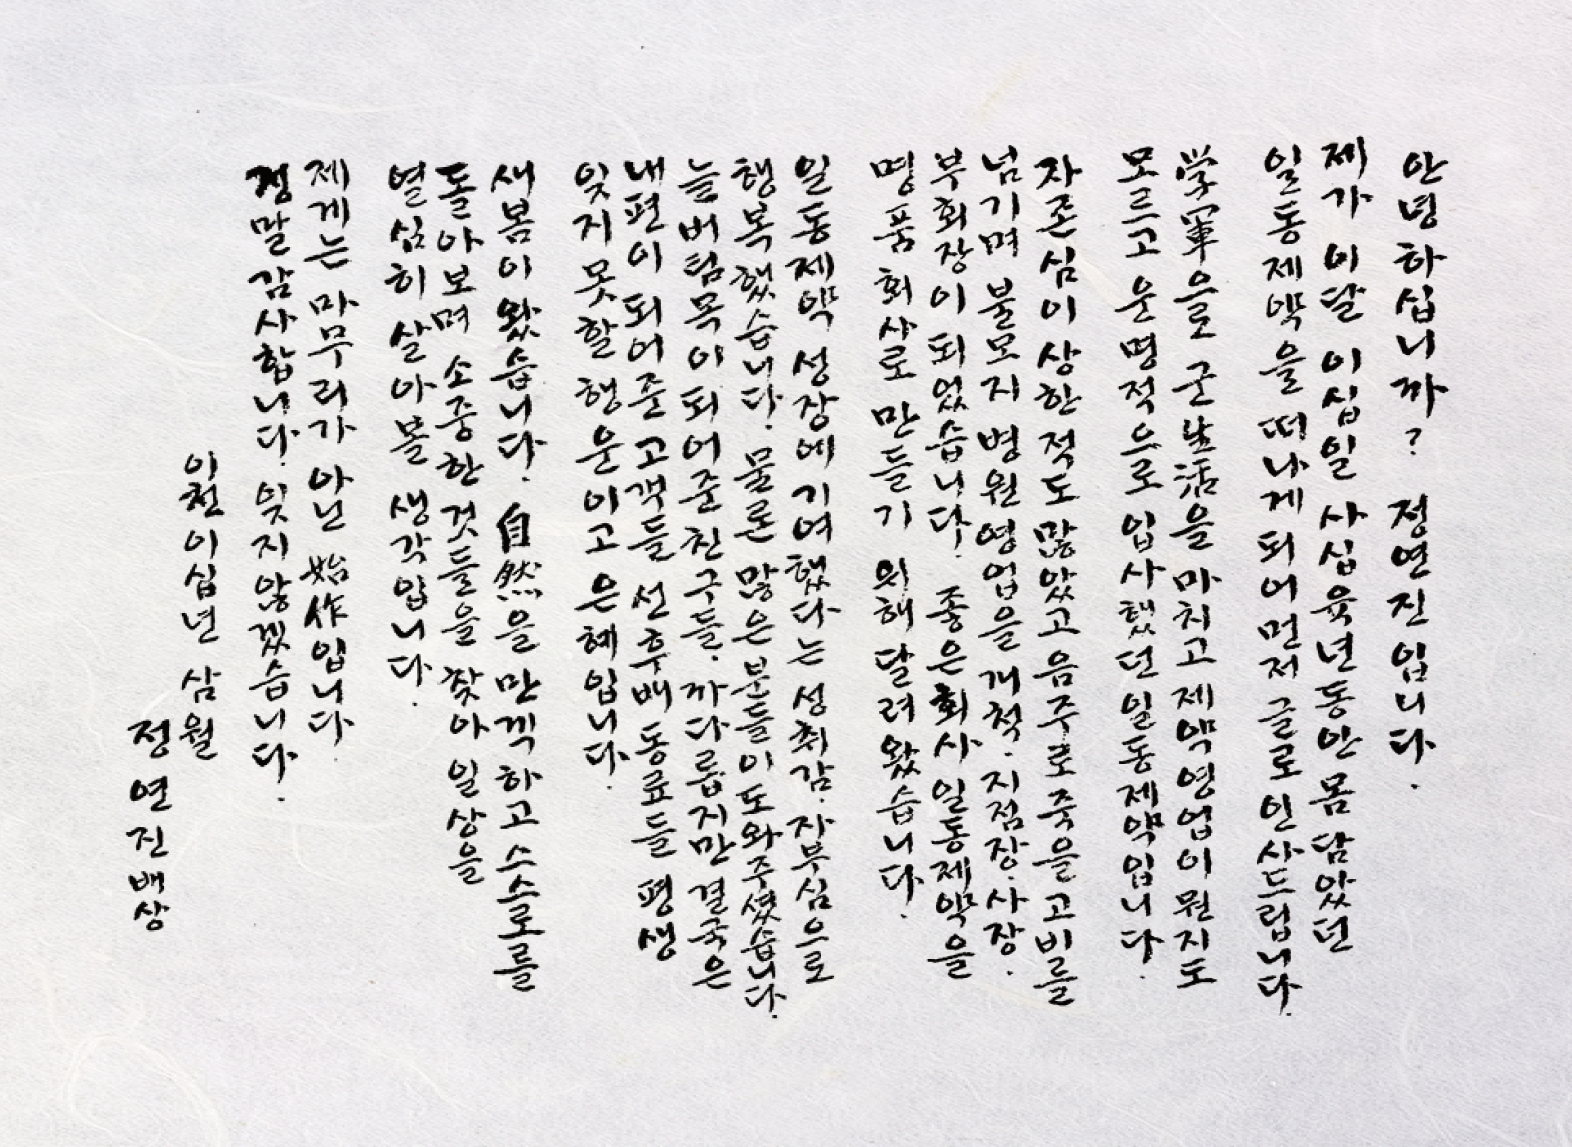 안녕하십니까? 정연진입니다.
제가 이달 이십일 사십육년동안 몸 담았던
일동제약을 떠나게되어 먼저 글로 인사드립니다.
学軍으로 군生活을 마치고 제약영업이 뭔지도
모르고 운명적으로 입사했던 일동제약입니다.
자존심이 상한 적도 많았고 음주로 죽을 고비를
넘기며 불모지 병원영업을 개척. 지점장. 사장.
부회장이 되었습니다. 좋은회사 일동제약을
명품회사로 만들기 위해 달려왔습니다.
일동제약 성장에 기여했다는 성취감. 자부심으로
행복했습니다. 물론 많은분들이 도와주셨습니다.
늘 버팀목이 되어준 친구들. 까다롭지만 결국은
내편이 되어준 고객들 선후배 동료들 평생
잊지못할 행운이고 은혜입니다.
새봄이 왔습니다. 自然을 만끽하고 스스로를
돌아보며 소중한 것들을 찾아 일상을
열심히 살아볼 생각입니다.
제게는 마무리가 아닌 始作입니다.
정말감사합니다. 잊지않겠습니다.
이천이십년 삼월
정연진배상